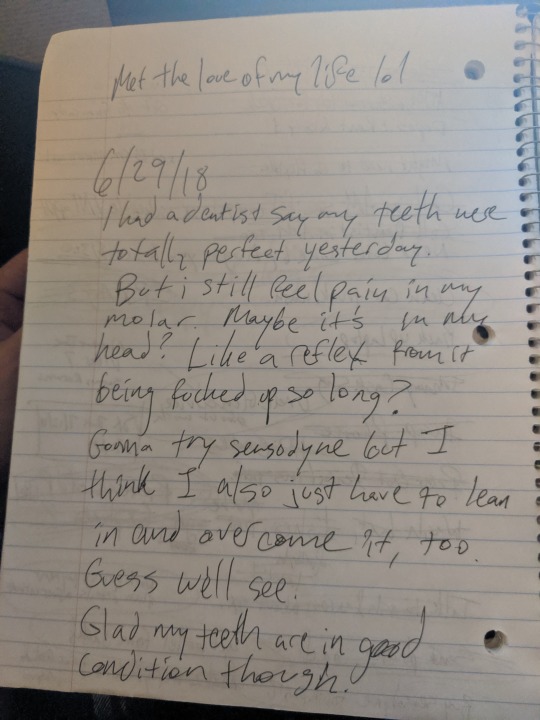 Met the love of my life lol
6/29/18
I had a dentist say my teeth were
totally perfect yesterday.
But i still feel pain in my
molar. Maybe it's in my
head? Like a reflex from it
being fucked up so long?
Gonna try sensodyne but I
think I also just have to lean
in and overcome it, too.
Guess we'll see.
Glad my teeth are in good
condition though.